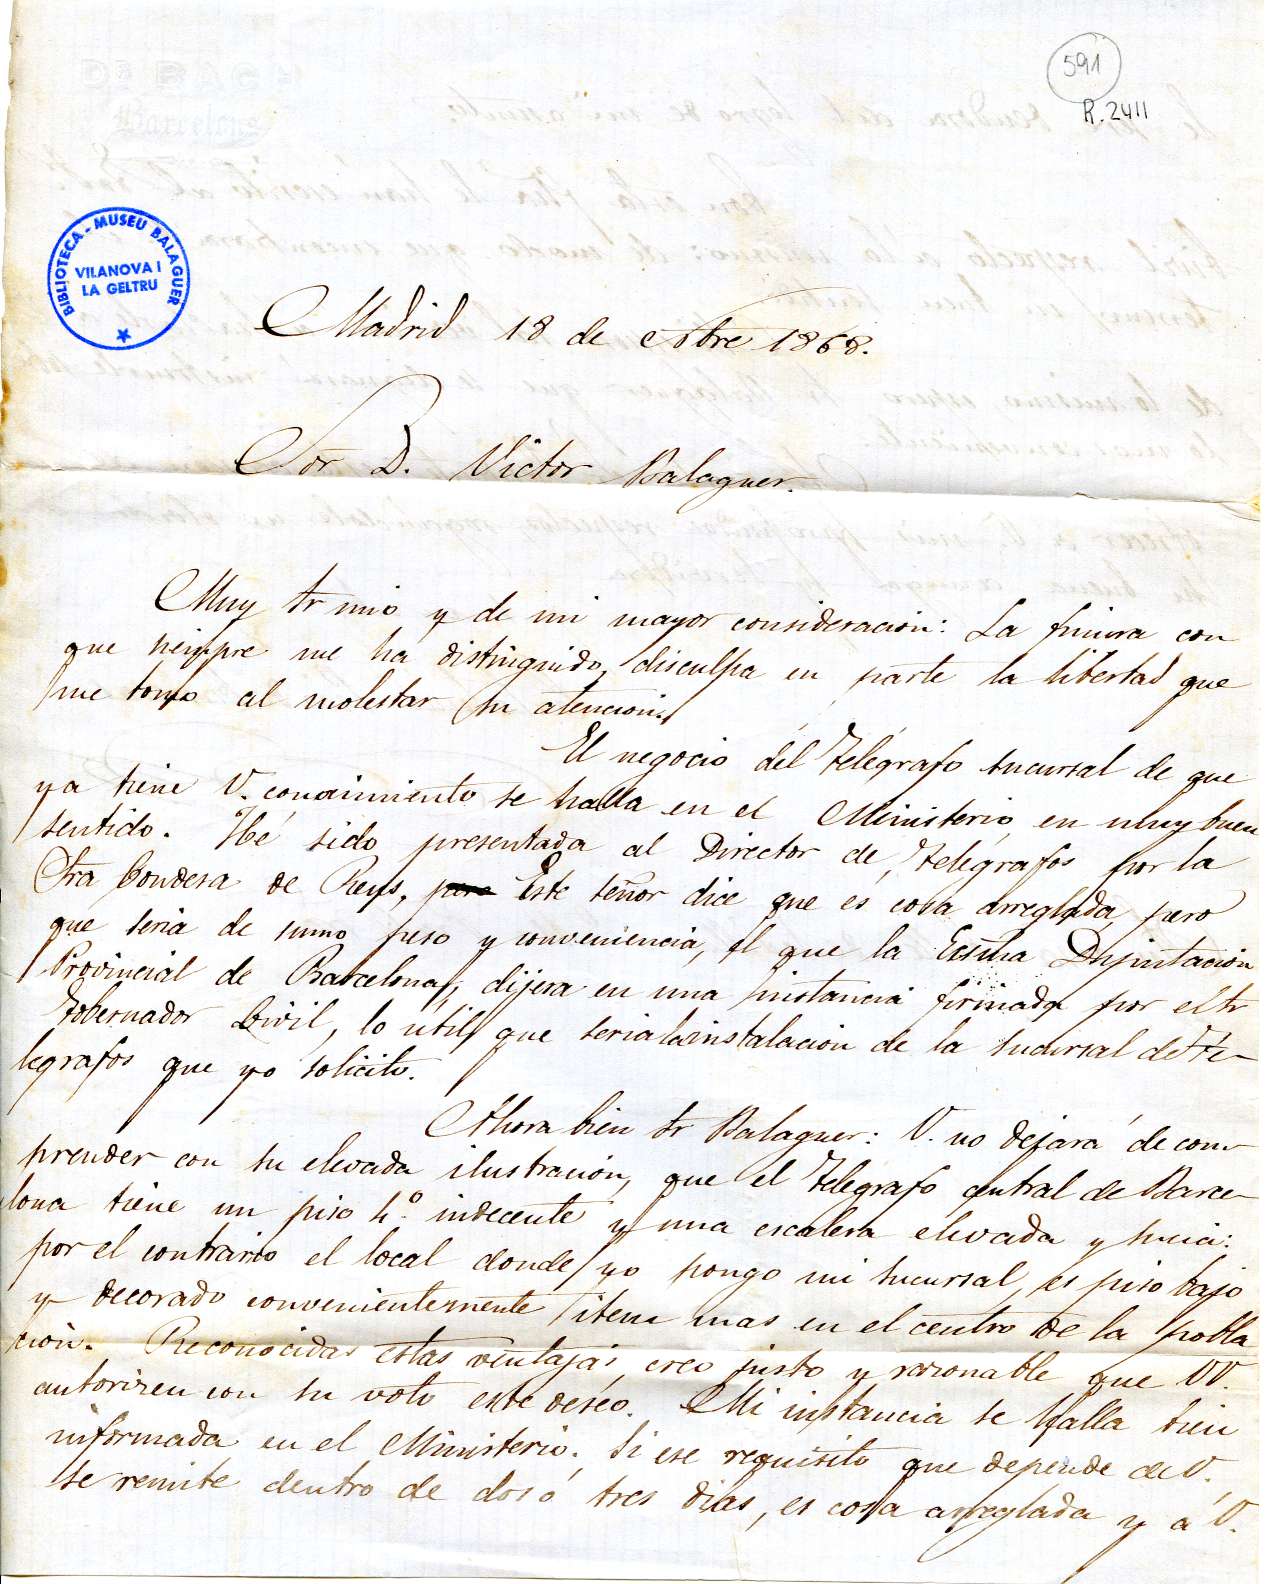 591
R.2411
Dn BACH
Barcelona
BIBLIOTECA - MUSEU BALAGUER
VILANOVA I
LA GELTRU
Madrid 18 de Nbre 1868.
Sor D. Victor Balaguer.
Muy Sr mio y de mi mayor consideracion: La finura con
que siempre me ha distinguido, disculpa en parte la libertad que
me tomo al molestar su atencion.
El negocio del Telégrafo sucursal de que
ya tiene V. conocimiento se halla en el Ministerio en muy buen
sentido. Hé sido presentada al Director de Telégrafos por la
Sra Condesa de Reus, Este señor dice que és cosa arreglada, pero
que seria de sumo peso y conveniencia, el que la Ecsma Diputacion
Provincial de Barcelona, dijera en una instancia firmada por el Sr
Gobernador Civil, lo util que seria la instalacion de la sucursal de Te-
legrafos que yo solicito.
Ahora bien Sr Balaguer: V. no dejará de com-
prender con su elevada ilustracion, que el Telégrafo central de Barce-
lona tiene un piso 4º. indecente y una escalera elevada y sucia:
por el contrario el local donde yo pongo mi sucursal, es piso bajo
y decorado convenientemente item mas en el centro de la pobla
cion. Reconocidas estas ventajas, creo justo y razonable que VV.
autorizen con su voto este deseo. Mi instancia se halla bien
informada en el Ministerio. Si ese requisito que depende de V.
se remite dentro de dos ó tres dias, es cosa arreglada y á V.